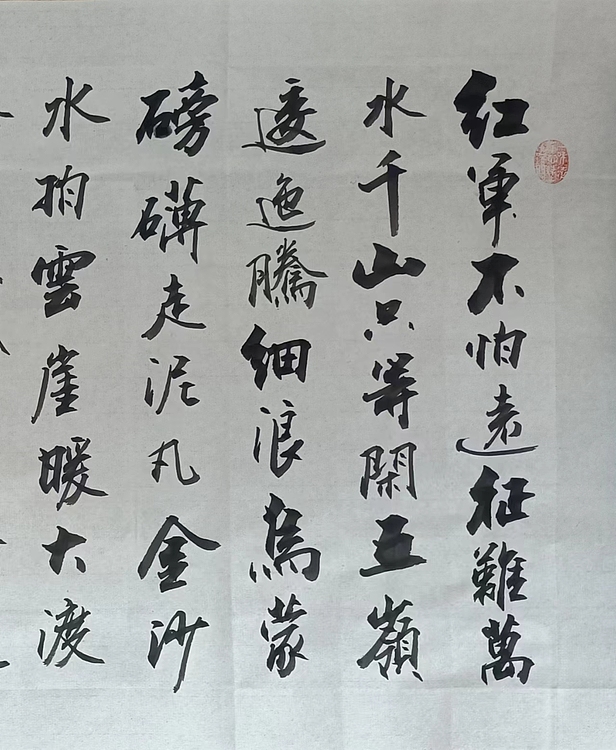 红军不怕远征難萬
水千山只等閑五嶺
逶迤騰細浪烏蒙
磅礴走泥丸金沙
水拍雲崖暖大渡